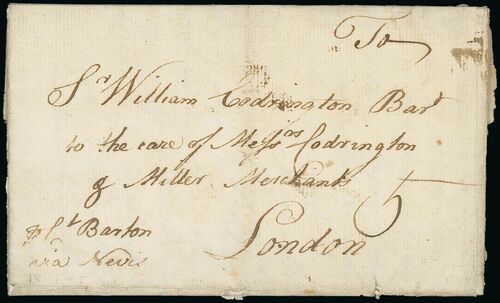 To
Sr William Codrington Bart
to the care of Messrs Codrington
& Miller Merchants
London
5
Barton
via Nevis